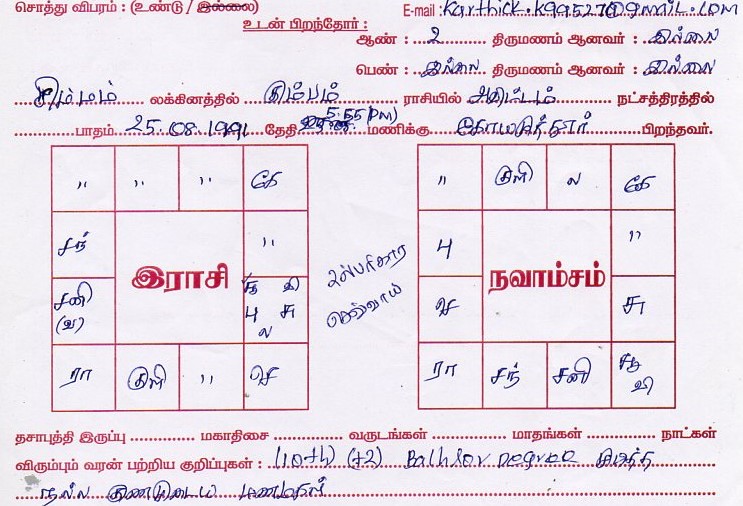 சொத்து விபரம் : (உண்டு / இல்லை)
E-mail : Karthick.k99527@gmail.com
உடன் பிறந்தோர் :
ஆண் : 2 திருமணம் ஆனவர் : இல்லை
பெண் : இல்லை திருமணம் ஆனவர் : இல்லை
சிம்மம் லக்கினத்தில் கும்பம் ராசியில் அவிட்டம் நட்சத்திரத்தில்
பாதம் 25.08.1991 தேதி 5.55 (PM) மணிக்கு கோயமுத்தூர் பிறந்தவர்.
" " " கே
சந் "
சனி (வ) சூ வி பு சு ல
ரா குளி " செ
இராசி
உப்பரிகார செவ்வாய்
" குளி ல கே
பு "
செ சு
ரா சந் சனி சூ வி
நவாம்சம்
தசாபுத்தி இருப்பு மகாதிசை வருடங்கள் மாதங்கள் நாட்கள்
விரும்பும் வரன் பற்றிய குறிப்புகள் : (10th) (+2) Bathlor Degree
நல்ல குணமுடைய மணமகள்